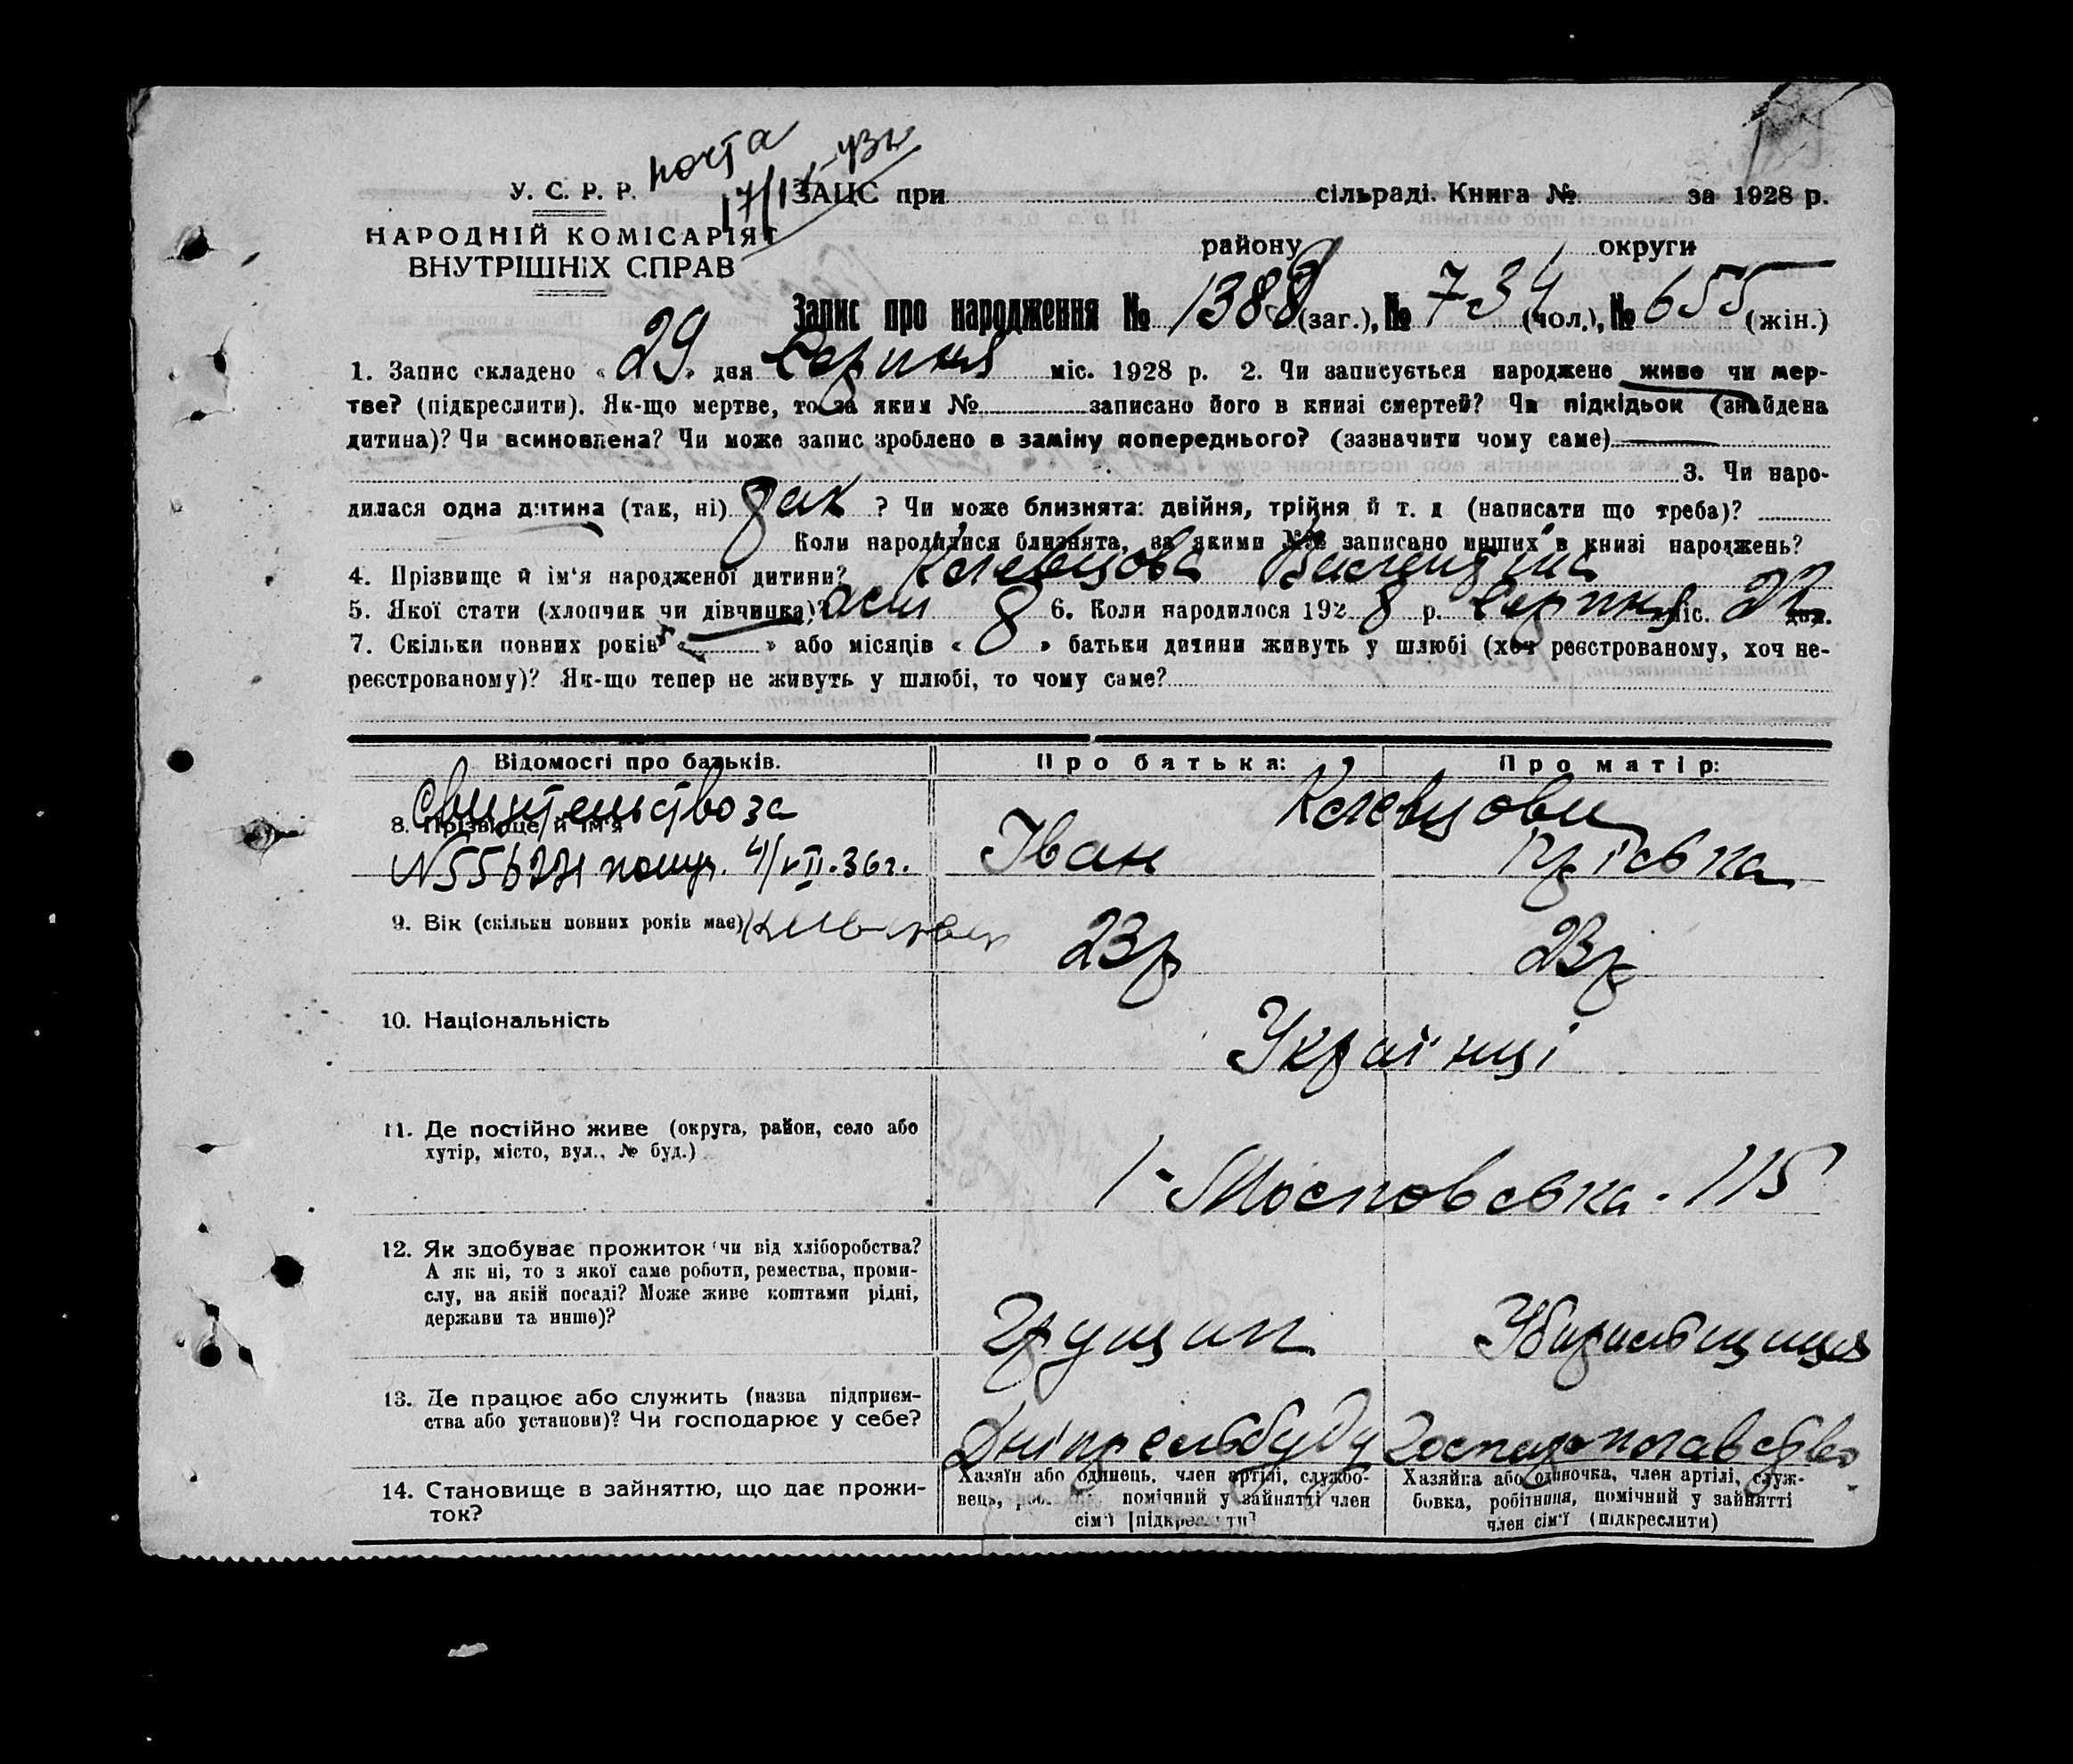 почта
17/IX-43г
У. С. Р. Р.
НАРОДНІЙ КОМІСАРІЯТ
ВНУТРІШНІХ СПРАВ
ЗАЦС при сільраді. Книга № за 1928 р.
району округи
Запис про народження № 1388 (заг.), № 734 (чол.), № 655 (жін.)
1. Запис складено « 29 » дня Серпня міс. 1928 р. 2. Чи записується народжене живе чи мер-
тве? (підкреслити). Як-що мертве, то за яким № записано його в книзі смертей? Чи підкідьок (знайдена
дитина)? Чи всиновлена? Чи може запис зроблено в заміну попереднього? (зазначити чому саме)
3. Чи наро-
дилася одна дитина (так, ні) ? Чи може близнята: двійня, трійня й т. д (написати що треба)?
Коли народилися близнята, за якими №№ записано инших в книзі народжень?
4. Прізвище й ім'я народженої дитини? Клевцова Валендіна
5. Якої стати (хлопчик чи дівчинка)? 6. Коли народилося 1928 р. Серпня міс. 22 дня.
7. Скільки повних років « » або місяців « 8 » батьки дитини живуть у шлюбі (хоч реєстрованому, хоч не-
реєстрованому)? Як-що тепер не живуть у шлюбі, то чому саме?
Відомості про батьків. Про батька: Про матір:
Свидтельство за Клевцови
8. Прізвище й ім'я Іван
9. Вік (скільки повних років має) 23р 23р
10. Національність Українці
11. Де постійно живе (округа, район, село або
хутір, місто, вул., № буд.)
1-Московська. 115
12. Як здобуває прожиток чи від хліборобства?
А як ні, то з якої саме роботи, ремества, проми-
слу, на якій посаді? Може живе коштами рідні,
держави та инше)?
Грущик
13. Де працює або служить (назва підприєм-
ства або установи)? Чи господарює у себе?
Дніпрельбуду
14. Становище в зайняттю, що дає прожи-
ток?
Хазяїн або одинець, член артілі, службо-
вець, помічний у зайнятті член
сім'ї [підкреслити]
Хазяйка або одиночка, член артілі, служ-
бовка, робітниця, помічний у зайнятті
член сім'ї (підкреслити)